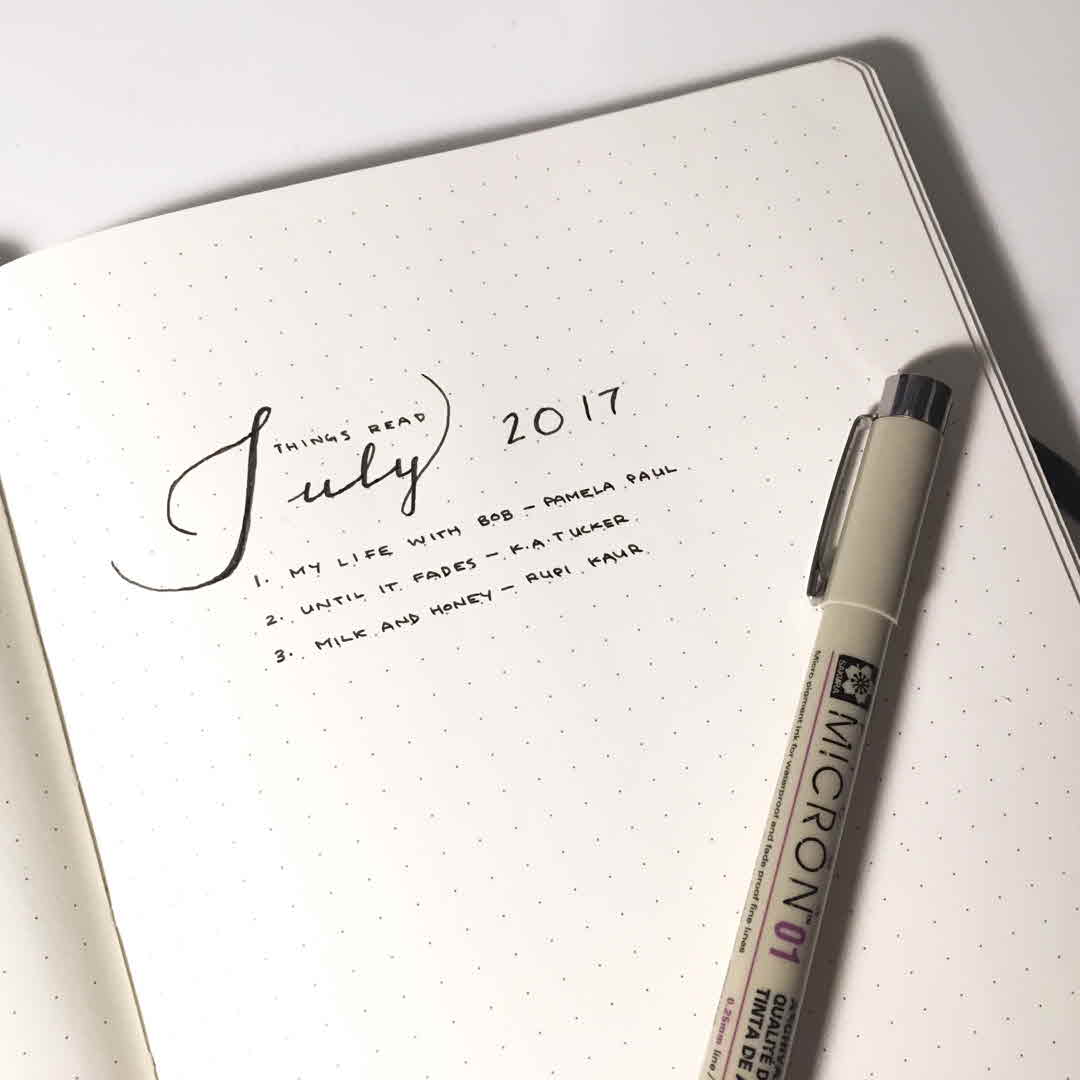 THINGS READ
July 2017
1. MY LIFE WITH BOB – PAMELA PAUL
2. UNTIL IT FADES – K.A. TUCKER
3. MILK AND HONEY – RUPI KAUR
SAKURA
MICRON™ 01
Micro pigment ink for waterproof and fade proof fine lines
0.25mm line /
QUALITÉ D
TINTA DE